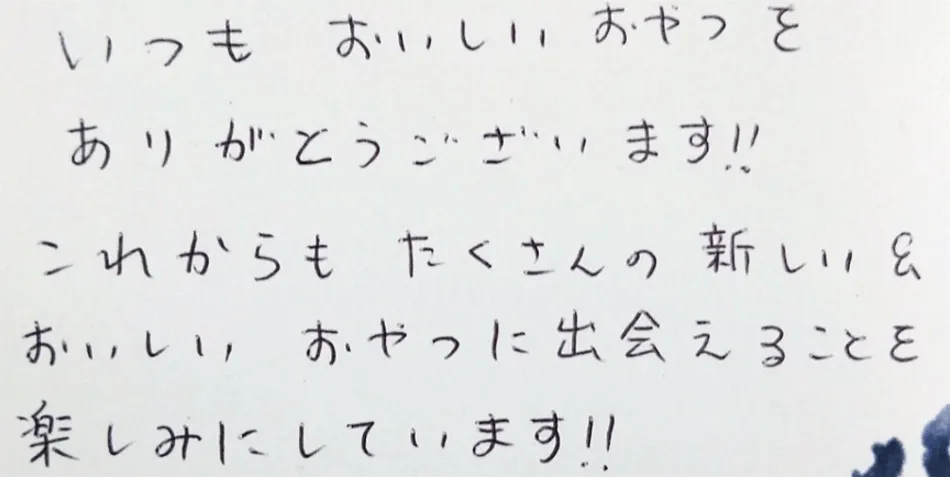 いつも おいしい おやつを
ありがとうございます!!
これからも たくさんの 新しい &
おいしい おやつに出会えることを
楽しみにしています!!